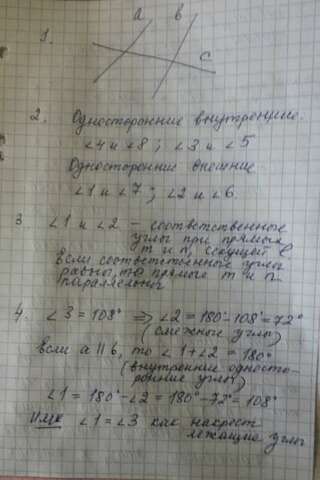 a в
1. c
2. Односторонние внутренние.
∠4 и ∠8 ; ∠3 и ∠5
Односторонние внешние
∠1 и ∠7 ; ∠2 и ∠6
3. ∠1 и ∠2 – соответственные
углы при прямых
m и n, секущей c
Если соответственные углы
равны, то прямые m и n
параллельны
4. ∠3 = 108° ⇒ ∠2 = 180°-108° = 72°
(смежные углы)
Если a || b, то ∠1+∠2 = 180°
(внутренние односто-
ронние углы)
∠1 = 180° - ∠2 = 180° - 72° = 108°
Или ∠1 = ∠3 как накрест
лежащие углы